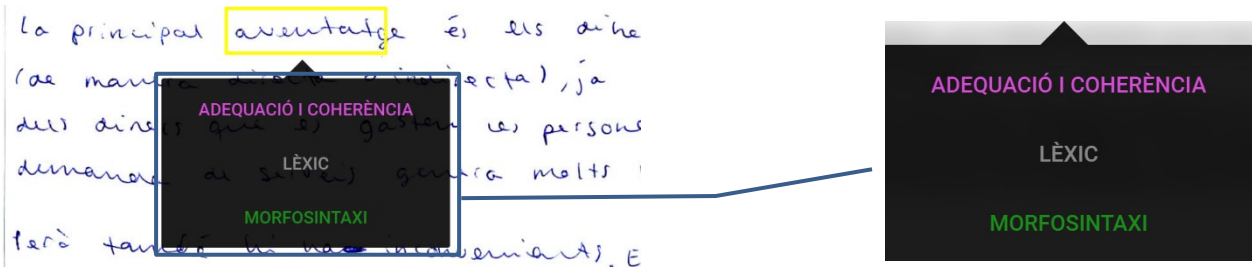 la principal aventatge és els dine
(de manera directa o indirecta), ja
dels diners que es gasten les persone
demanda de serveis genera molts
Però també hi ha inconvenients. E
ADEQUACIÓ I COHERÈNCIA
LÈXIC
MORFOSINTAXI
ADEQUACIÓ I COHERÈNCIA
LÈXIC
MORFOSINTAXI